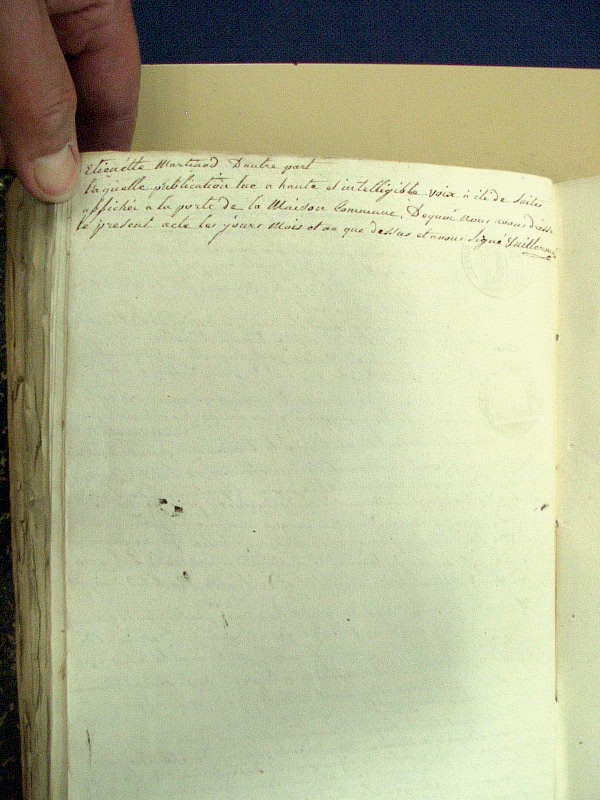 Etienette Martinod D'autre part
laquelle publication lue a haute et intelligible voix à été de suite
affichée a la porte de la Maison Commune, Dequoi nous avons dressé
le present acte les jours Mois et an que dessus et avons Signé